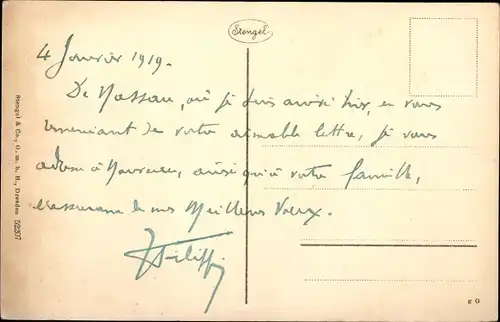 Stengel
4 Janvier 1919.
De Nassau, où je suis arrivé hier, en vous
remerciant de votre aimable lettre, je vous
adresse à Monsieur, ainsi qu'à votre famille,
l'assurance de mes Meilleurs Vœux.
Filippi
Stengel & Co., G. m. b. H., Dresden 52337
g G